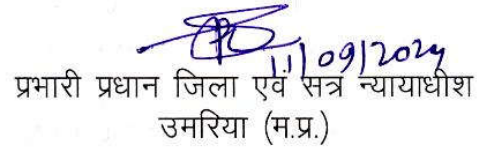 11/09/2024
प्रभारी प्रधान जिला एवं सत्र न्यायाधीश
उमरिया (म.प्र.)